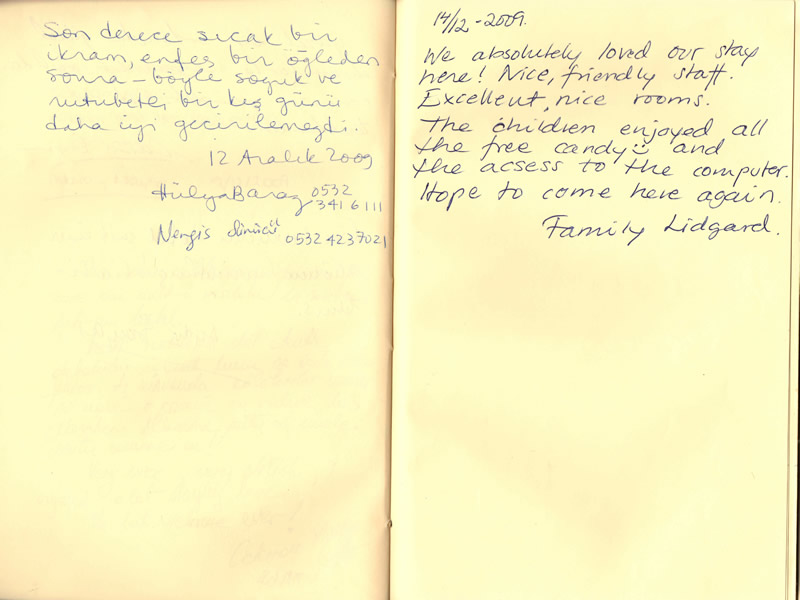 Son derece sıcak bir
ikram, enfes bir öğleden
sonra – böyle soğuk ve
rutubetli bir kış günü
daha iyi geçirilemezdi.
12 Aralık 2009
Hülya Baraz 0532
341 6111
Nergis 0532 4237021
14/12 - 2009.
We absolutely loved our stay
here! Nice, friendly staff.
Excellent, nice rooms.
The children enjoyed all
the free candy☺ and
the acsess to the computer.
Hope to come here again.
Family Lidgard.